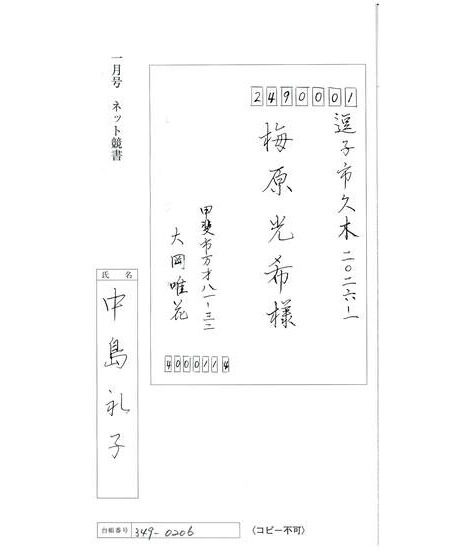 2490001
逗子市久木二ー二六ー一
梅原光希様
甲斐市万才八一ー三二
大岡唯花
4000114
一月号　ネット競書
氏名
中島礼子
台帳番号 349-0206
〈コピー不可〉